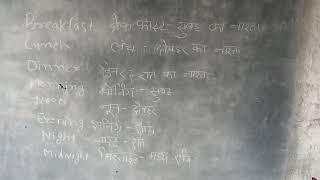 Breakfast ब्रेकफास्ट - सुबह का नाश्ता
Lunch लंच - दोपहर का नाश्ता
Dinner डिनर - रात का नाश्ता
Morning मॉर्निंग - सुबह
Noon नून - दोपहर
Evening इवनिंग - शाम
Night नाइट - रात
Midnight मिडनाइट - मध्य रात्रि